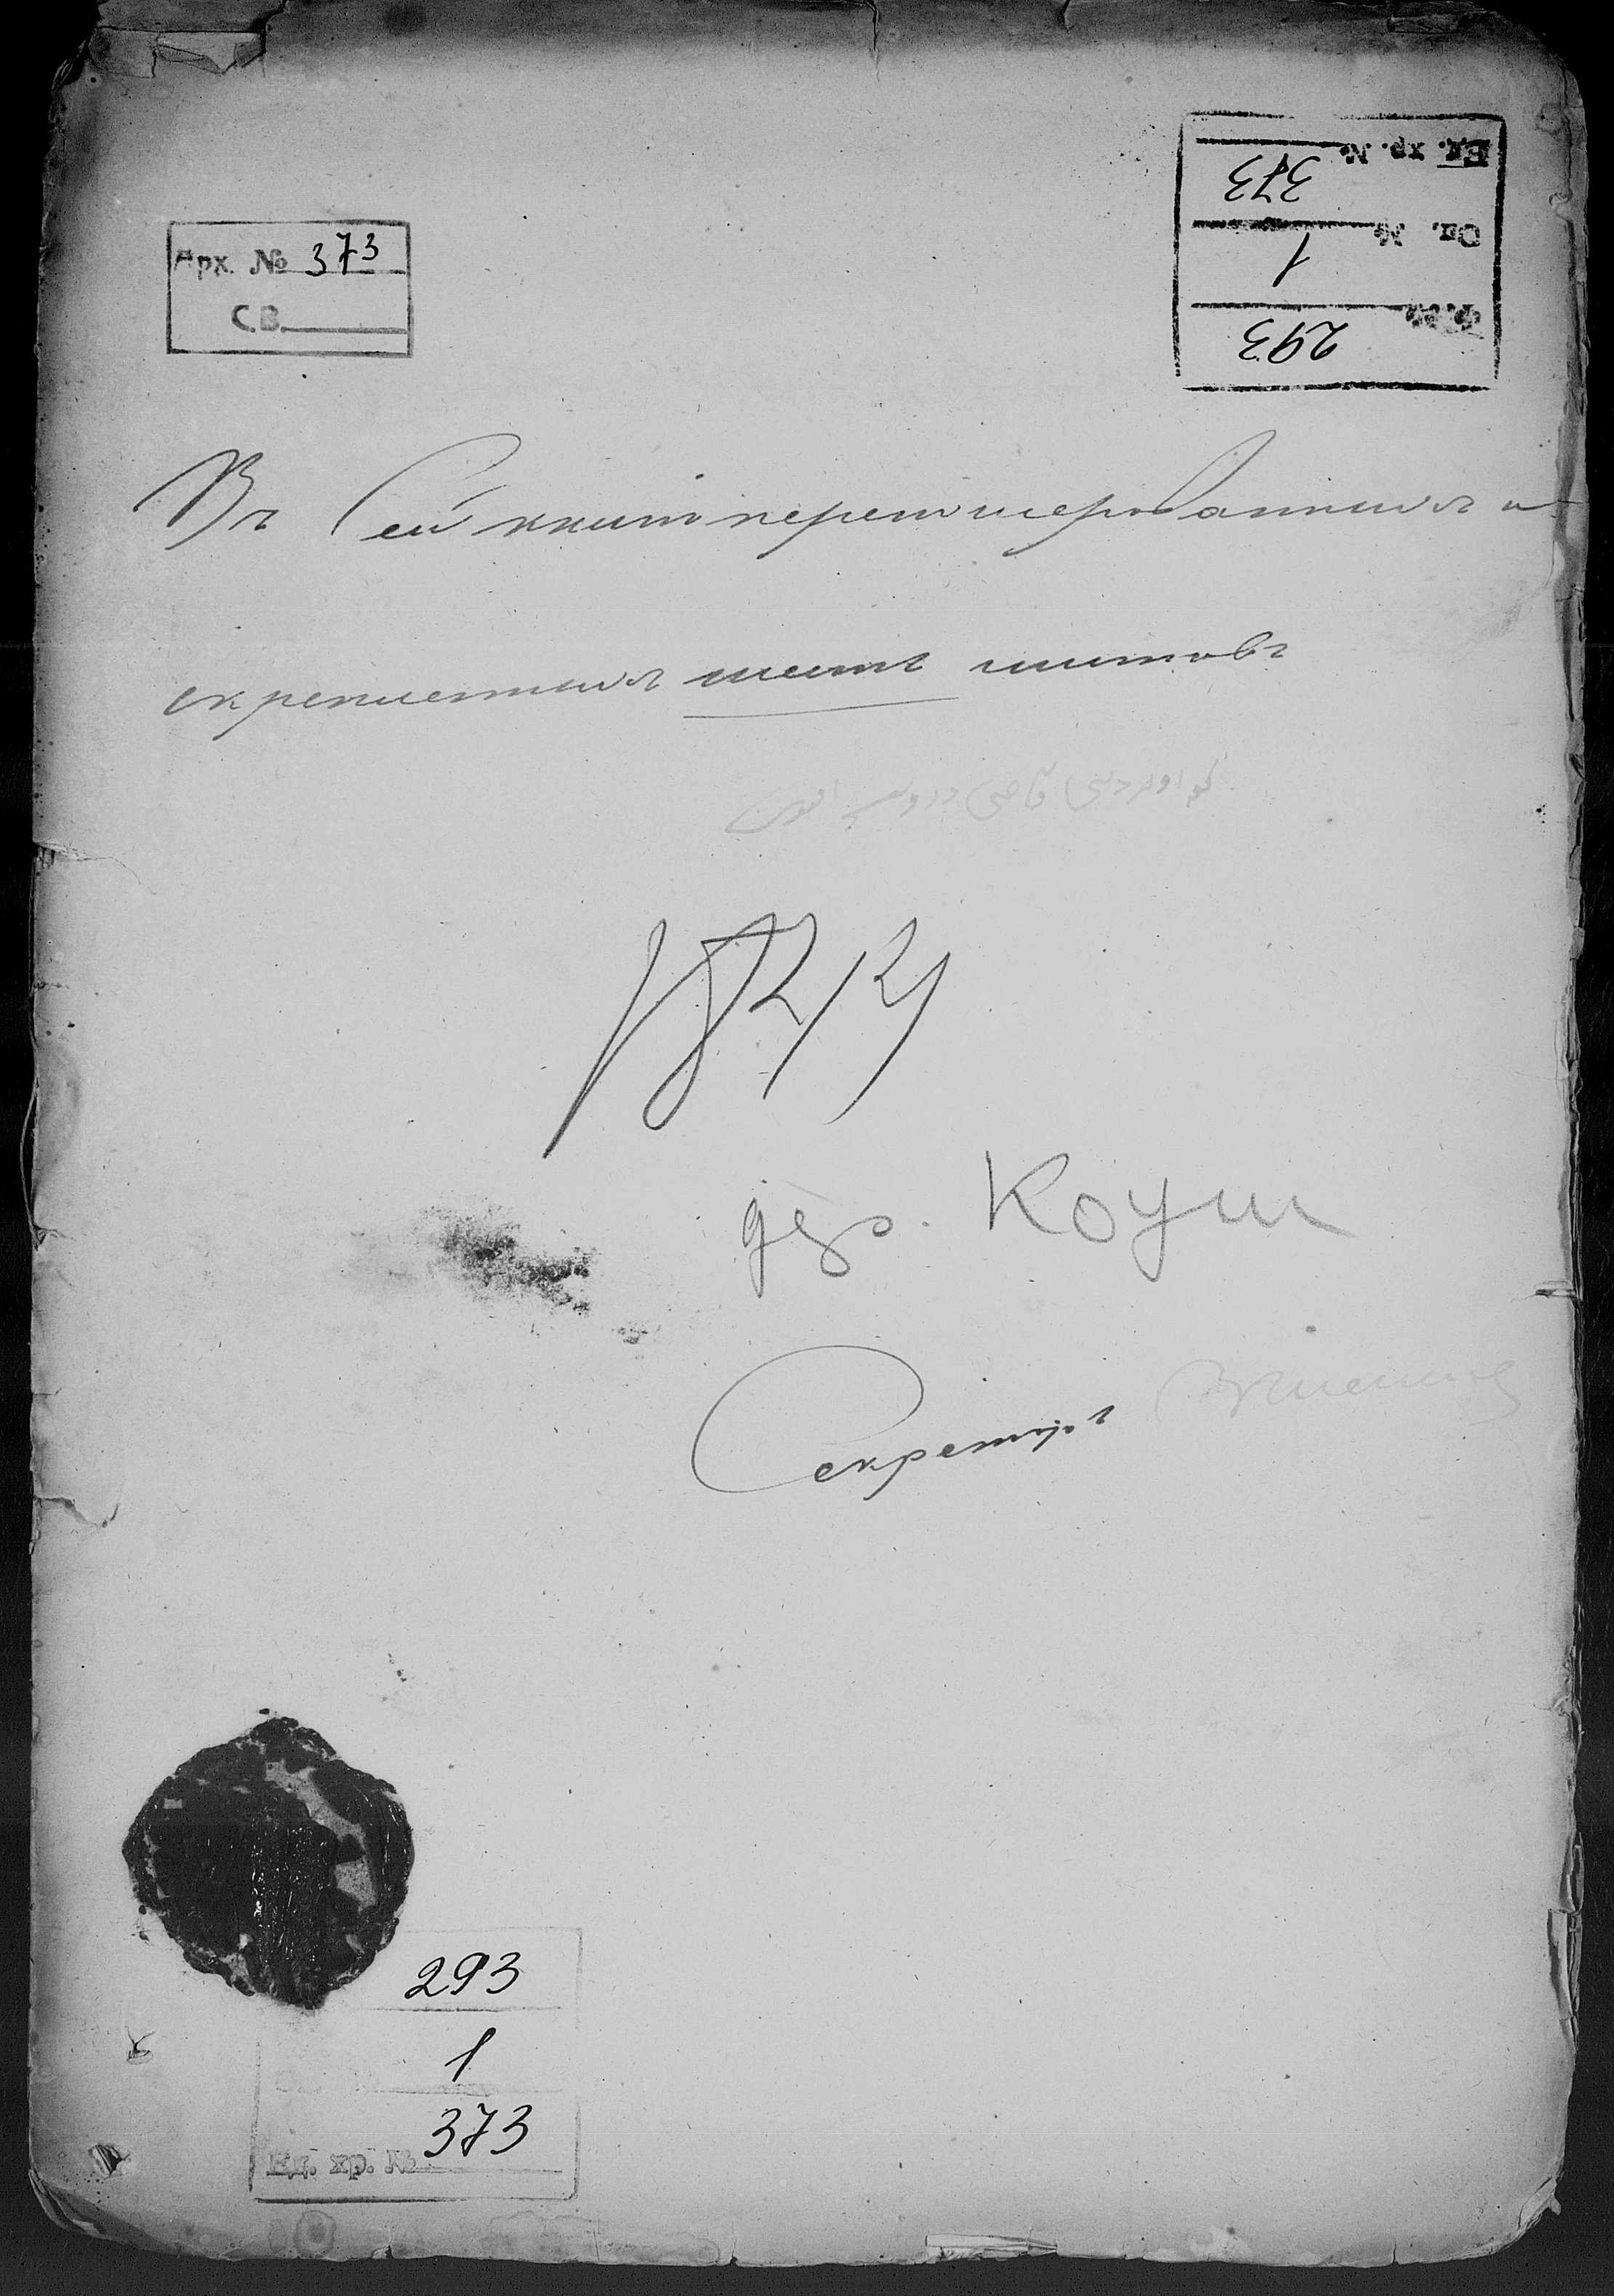 Арх. № 373
С.В.
Ед. хр. № 373
Оп. № 1
Ф. № 293
Въ Сей книгѣ перенумерованныхъ и
скрепленныхъ шесть листовъ
дер. Коуш
Секретарь
293
1
Ед. хр. № 373